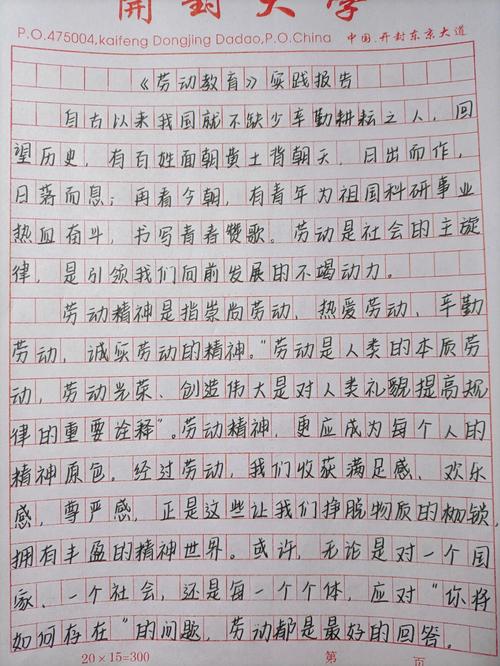 開封大学
P.O.475004,kaifeng Dongjing Dadao,P.O.China 中国.开封东京大道
《劳动教育》实践报告
自古以来我国就不缺少辛勤耕耘之人，回
望历史，有百姓面朝黄土背朝天，日出而作，
日落而息；再看今朝，有青年为祖国科研事业
热血奋斗，书写青春赞歌。劳动是社会的主旋
律，是引领我们向前发展的不竭动力。
劳动精神是指崇尚劳动、热爱劳动、辛勤
劳动、诚实劳动的精神。“劳动是人类的本质劳
动，劳动光荣、创造伟大是对人类礼貌提高规
律的重要诠释”。劳动精神，更应成为每个人的
精神原色，经过劳动，我们收获满足感、欢乐
感，尊严感，正是这些让我们挣脱物质的枷锁，
拥有丰盈的精神世界。或许，无论是对一个国
家、一个社会，还是每一个个体，应对“你将
如何存在”的问题，劳动都是最好的回答。
20×15=300 第 页